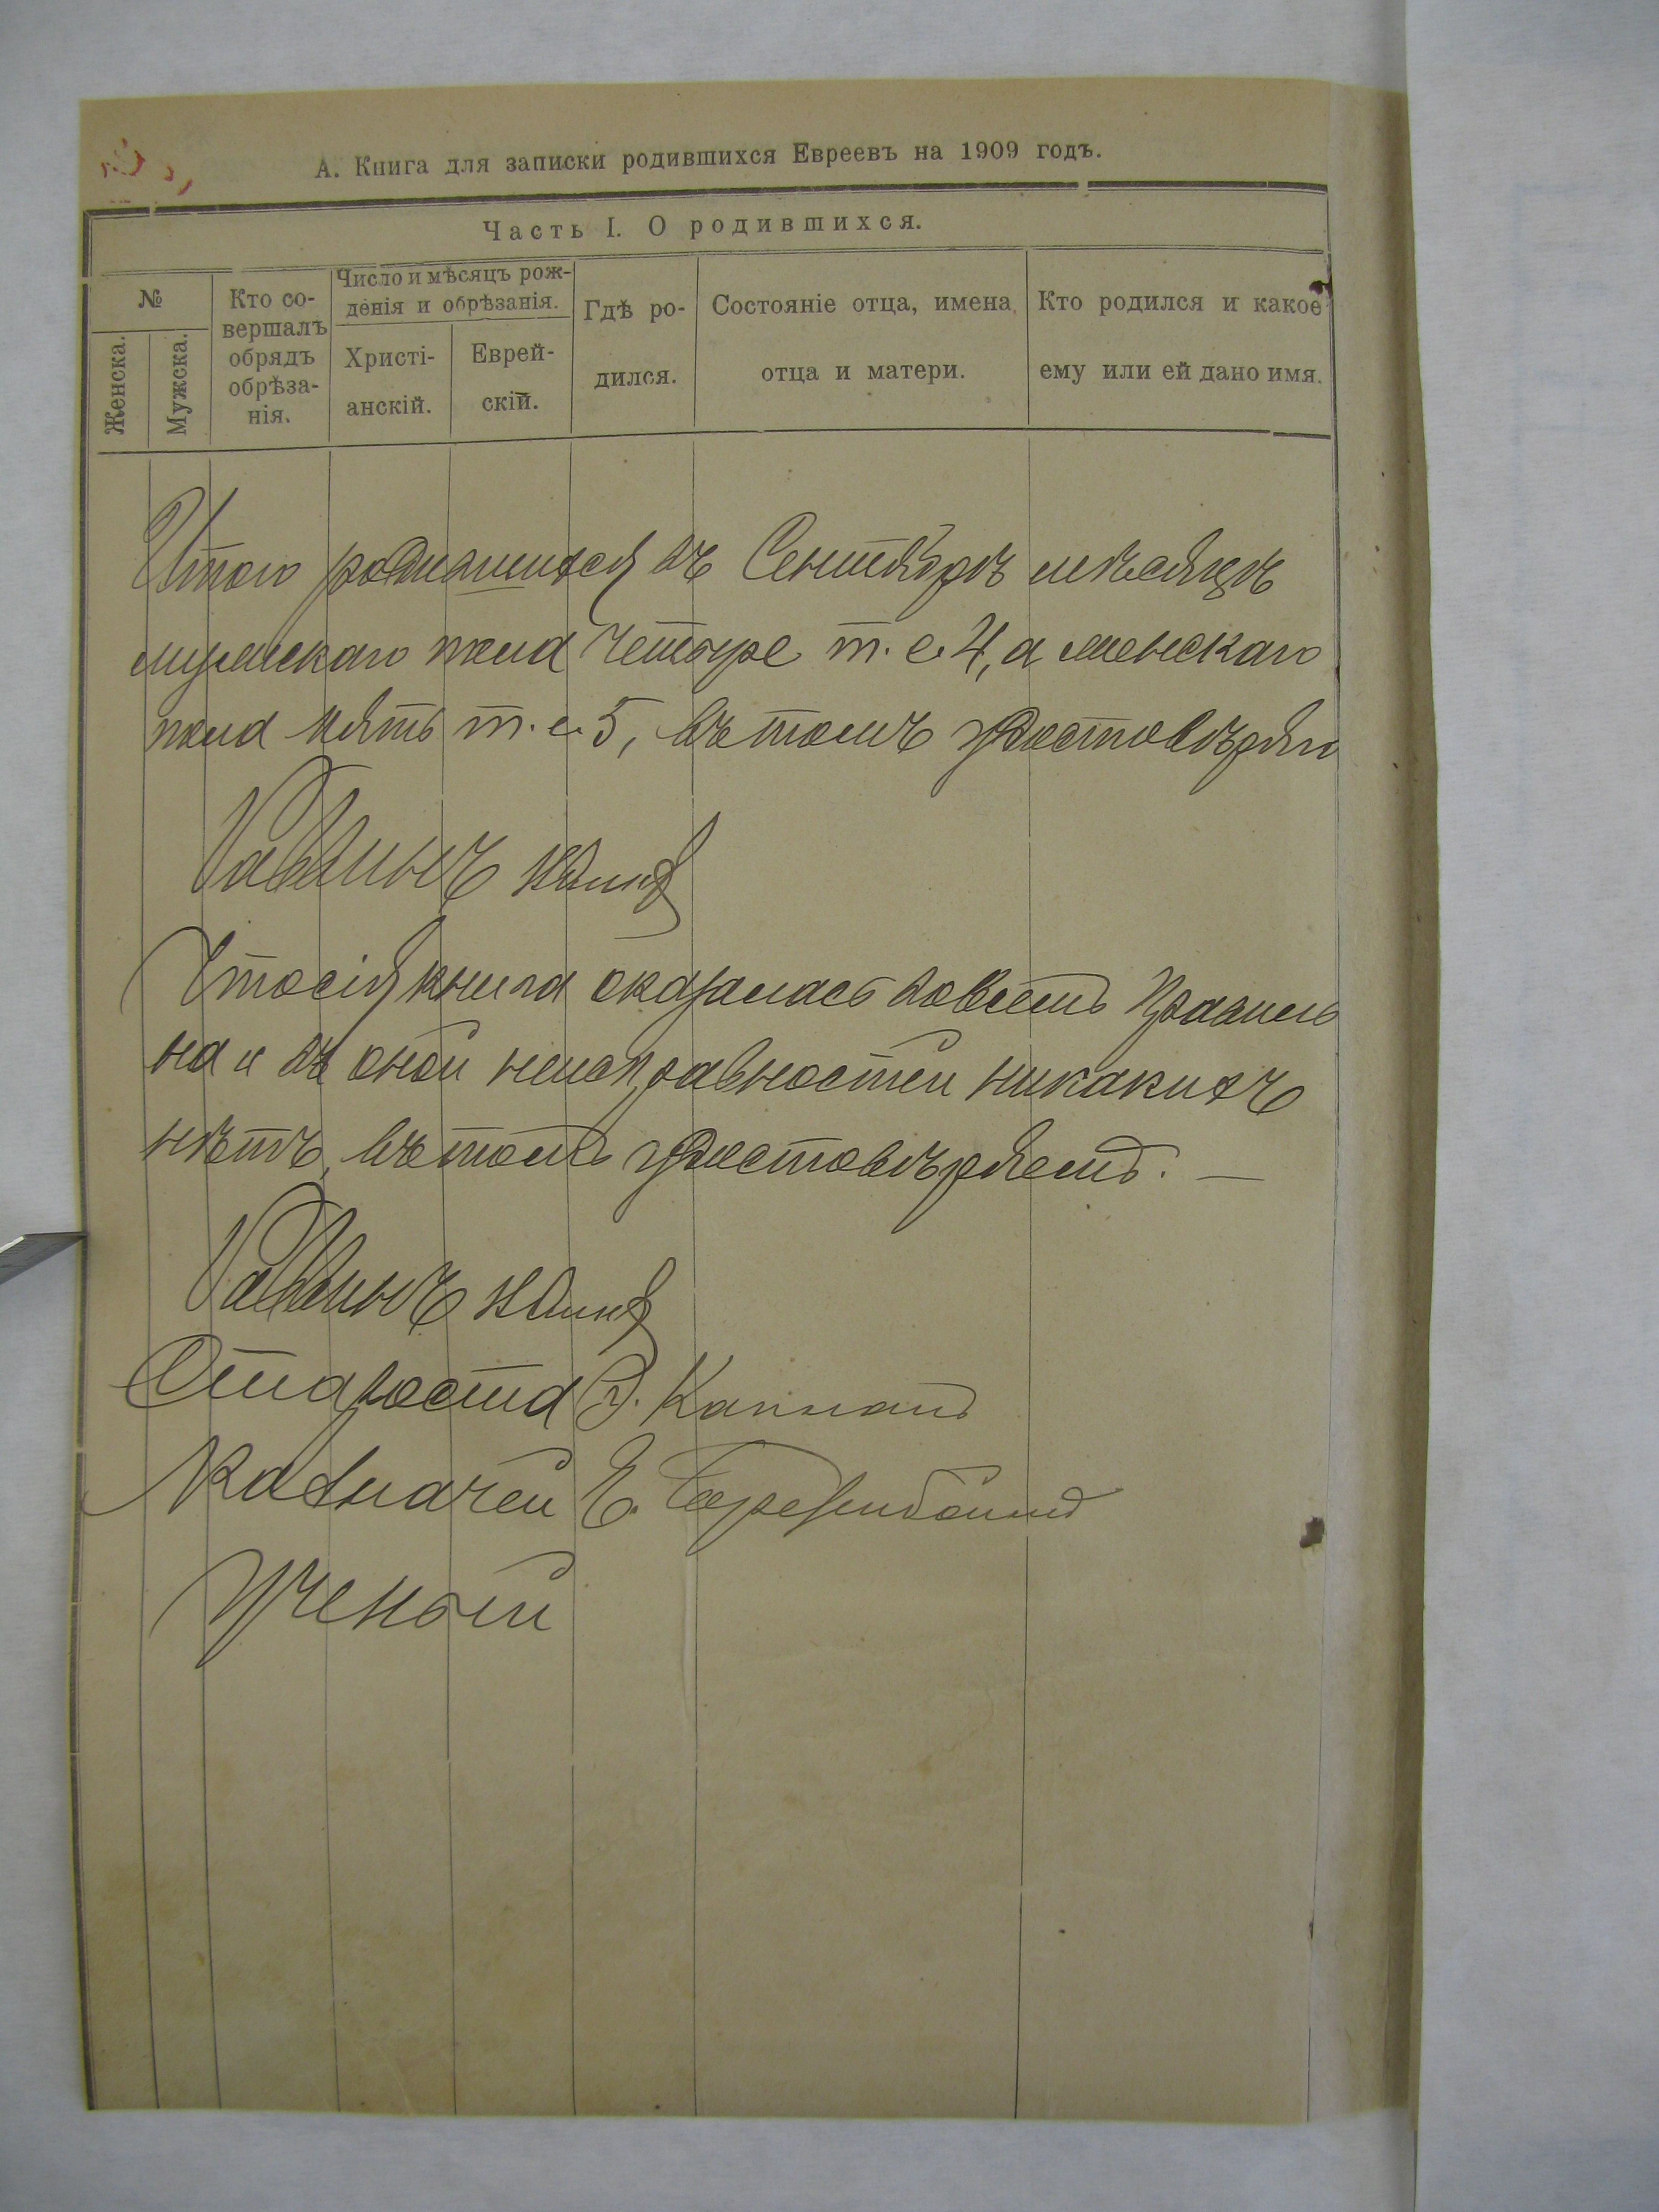 А. Книга для записки родившихся Евреевъ на 1909 годъ.
Часть I. О родившихся.
№
Женска.
Мужска.
Кто со-
вершалъ
обрядъ
обрѣза-
нія.
Число и мѣсяцъ рож-
денія и обрѣзанія.
Христі-
анскій.
Еврей-
скій.
Гдѣ ро-
дился.
Состояніе отца, имена
отца и матери.
Кто родился и какое
ему или ей дано имя.
Итого родившихся въ Сентябрѣ мѣсяцѣ
мужскаго пола четыре т. е. 4, а женскаго
пола пять т. е. 5, въ томъ удостовѣряю
Раввинъ
Что сія книга оказалась вовсемъ правиль
на и въ оной неисправностей никакихъ
нѣтъ, въ томъ удостовѣряемъ. —
Раввинъ
Староста Капланъ
Казначей Е.
Ученый